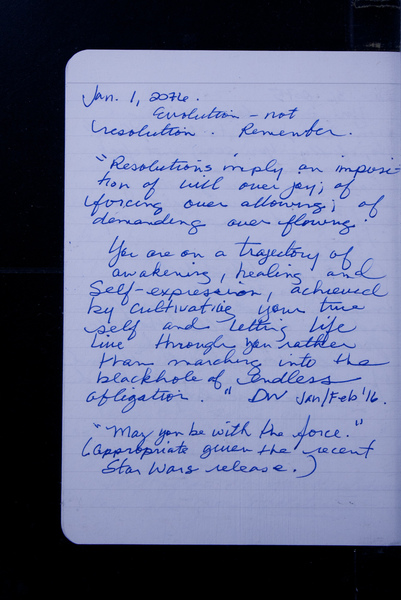 Jan. 1, 2016.
Evolution - not
resolution. Remember.
"Resolutions imply an imposi-
tion of will over joy; of
forcing over allowing; of
demanding over flowing.
You are on a trajectory of
awakening, healing and
self-expression, achieved
by cultivating your true
self and letting life
live through you rather
than marching into the
blackhole of endless
obligation." DW Jan/Feb '16.
"May you be with the force."
(appropriate given the recent
Star Wars release.)